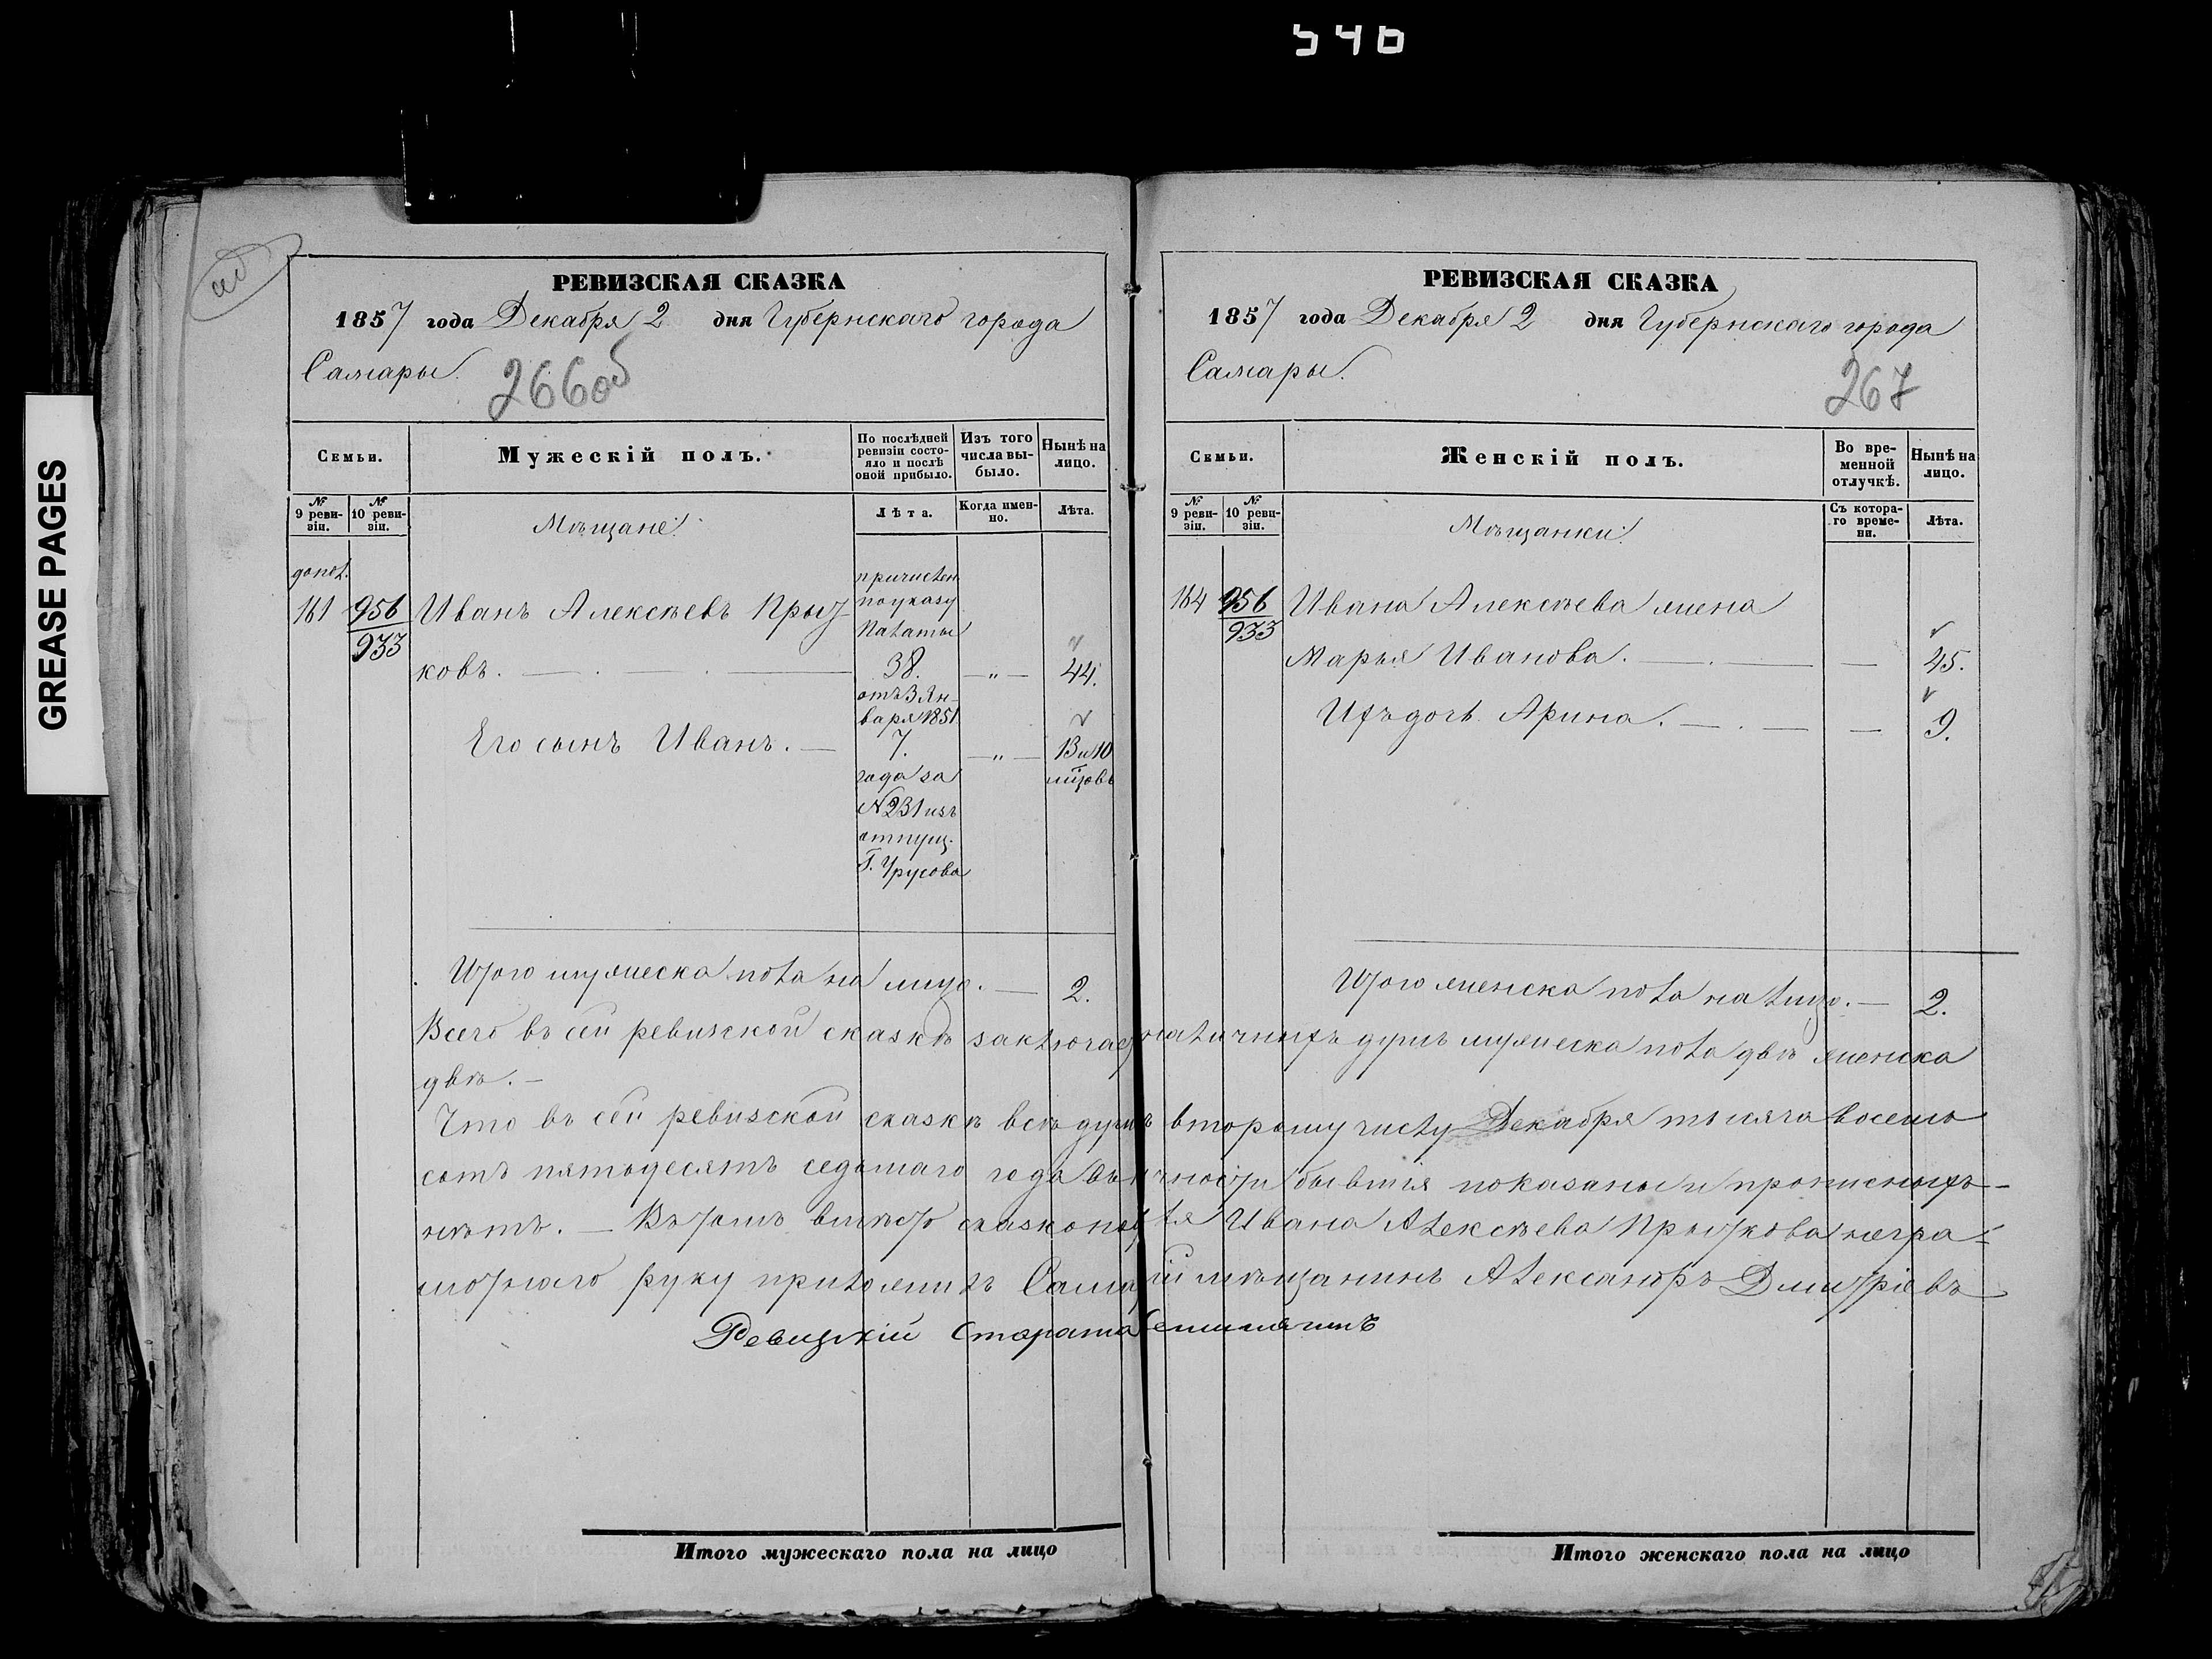 540
GREASE PAGES
РЕВИЗСКАЯ СКАЗКА
1857 года Декабря 2 дня Губернскаго города
Самары.
266об
Семьи.
Мужескій полъ.
По послѣдней ревизіи состояло и послѣ оной прибыло.
Изъ того числа выбыло.
Нынѣ на лицо.
№ 9 ревизіи.
№ 10 ревизіи.
Мѣщане:
Лѣта.
Когда именно.
Лѣта.
допол.
причислен
161 956 Иванъ Алексѣевъ Прыт- по указу
933
Палаты
ковъ. 38. — „ — 44.
отъ 3 Ян-
варя 1851
Его сынъ Иванъ. — 7. — „ — 13 и 10
года за мѣсовъ
№ 231 изъ
отпущ.
Г. Урусова
Итого мужеска пола на лицо. — 2.
РЕВИЗСКАЯ СКАЗКА
1857 года Декабря 2 дня Губернскаго города
Самары.
267
Семьи.
Женскій полъ.
Во временной отлучкѣ.
Нынѣ на лицо.
№ 9 ревизіи.
№ 10 ревизіи.
Мѣщанки:
Съ котораго времени.
Лѣта.
164 956 Ивана Алексѣева жена
933
Марья Иванова. — 45.
Ихъ дочь Арина. — 9.
Итого женска пола на лицо. — 2.
Всего въ сей ревизской сказкѣ заключает наличныхъ душъ мужеска пола двѣ женска
двѣ. —
Что въ сей ревизской сказкѣ всѣ души второму числу Декабря тысяча восемь
сотъ пятьдесятъ седьмаго года въ бывшія показаны и прописныхъ
нѣтъ. — Въ томъ вмѣсто сказкопо ля Ивана Алексѣева Прыткова негра-
мотнаго руку приложилъ Сама ій мѣщанинъ Александръ Дмитріевъ
Ревизскій Староста
Итого мужескаго пола на лицо
Итого женскаго пола на лицо